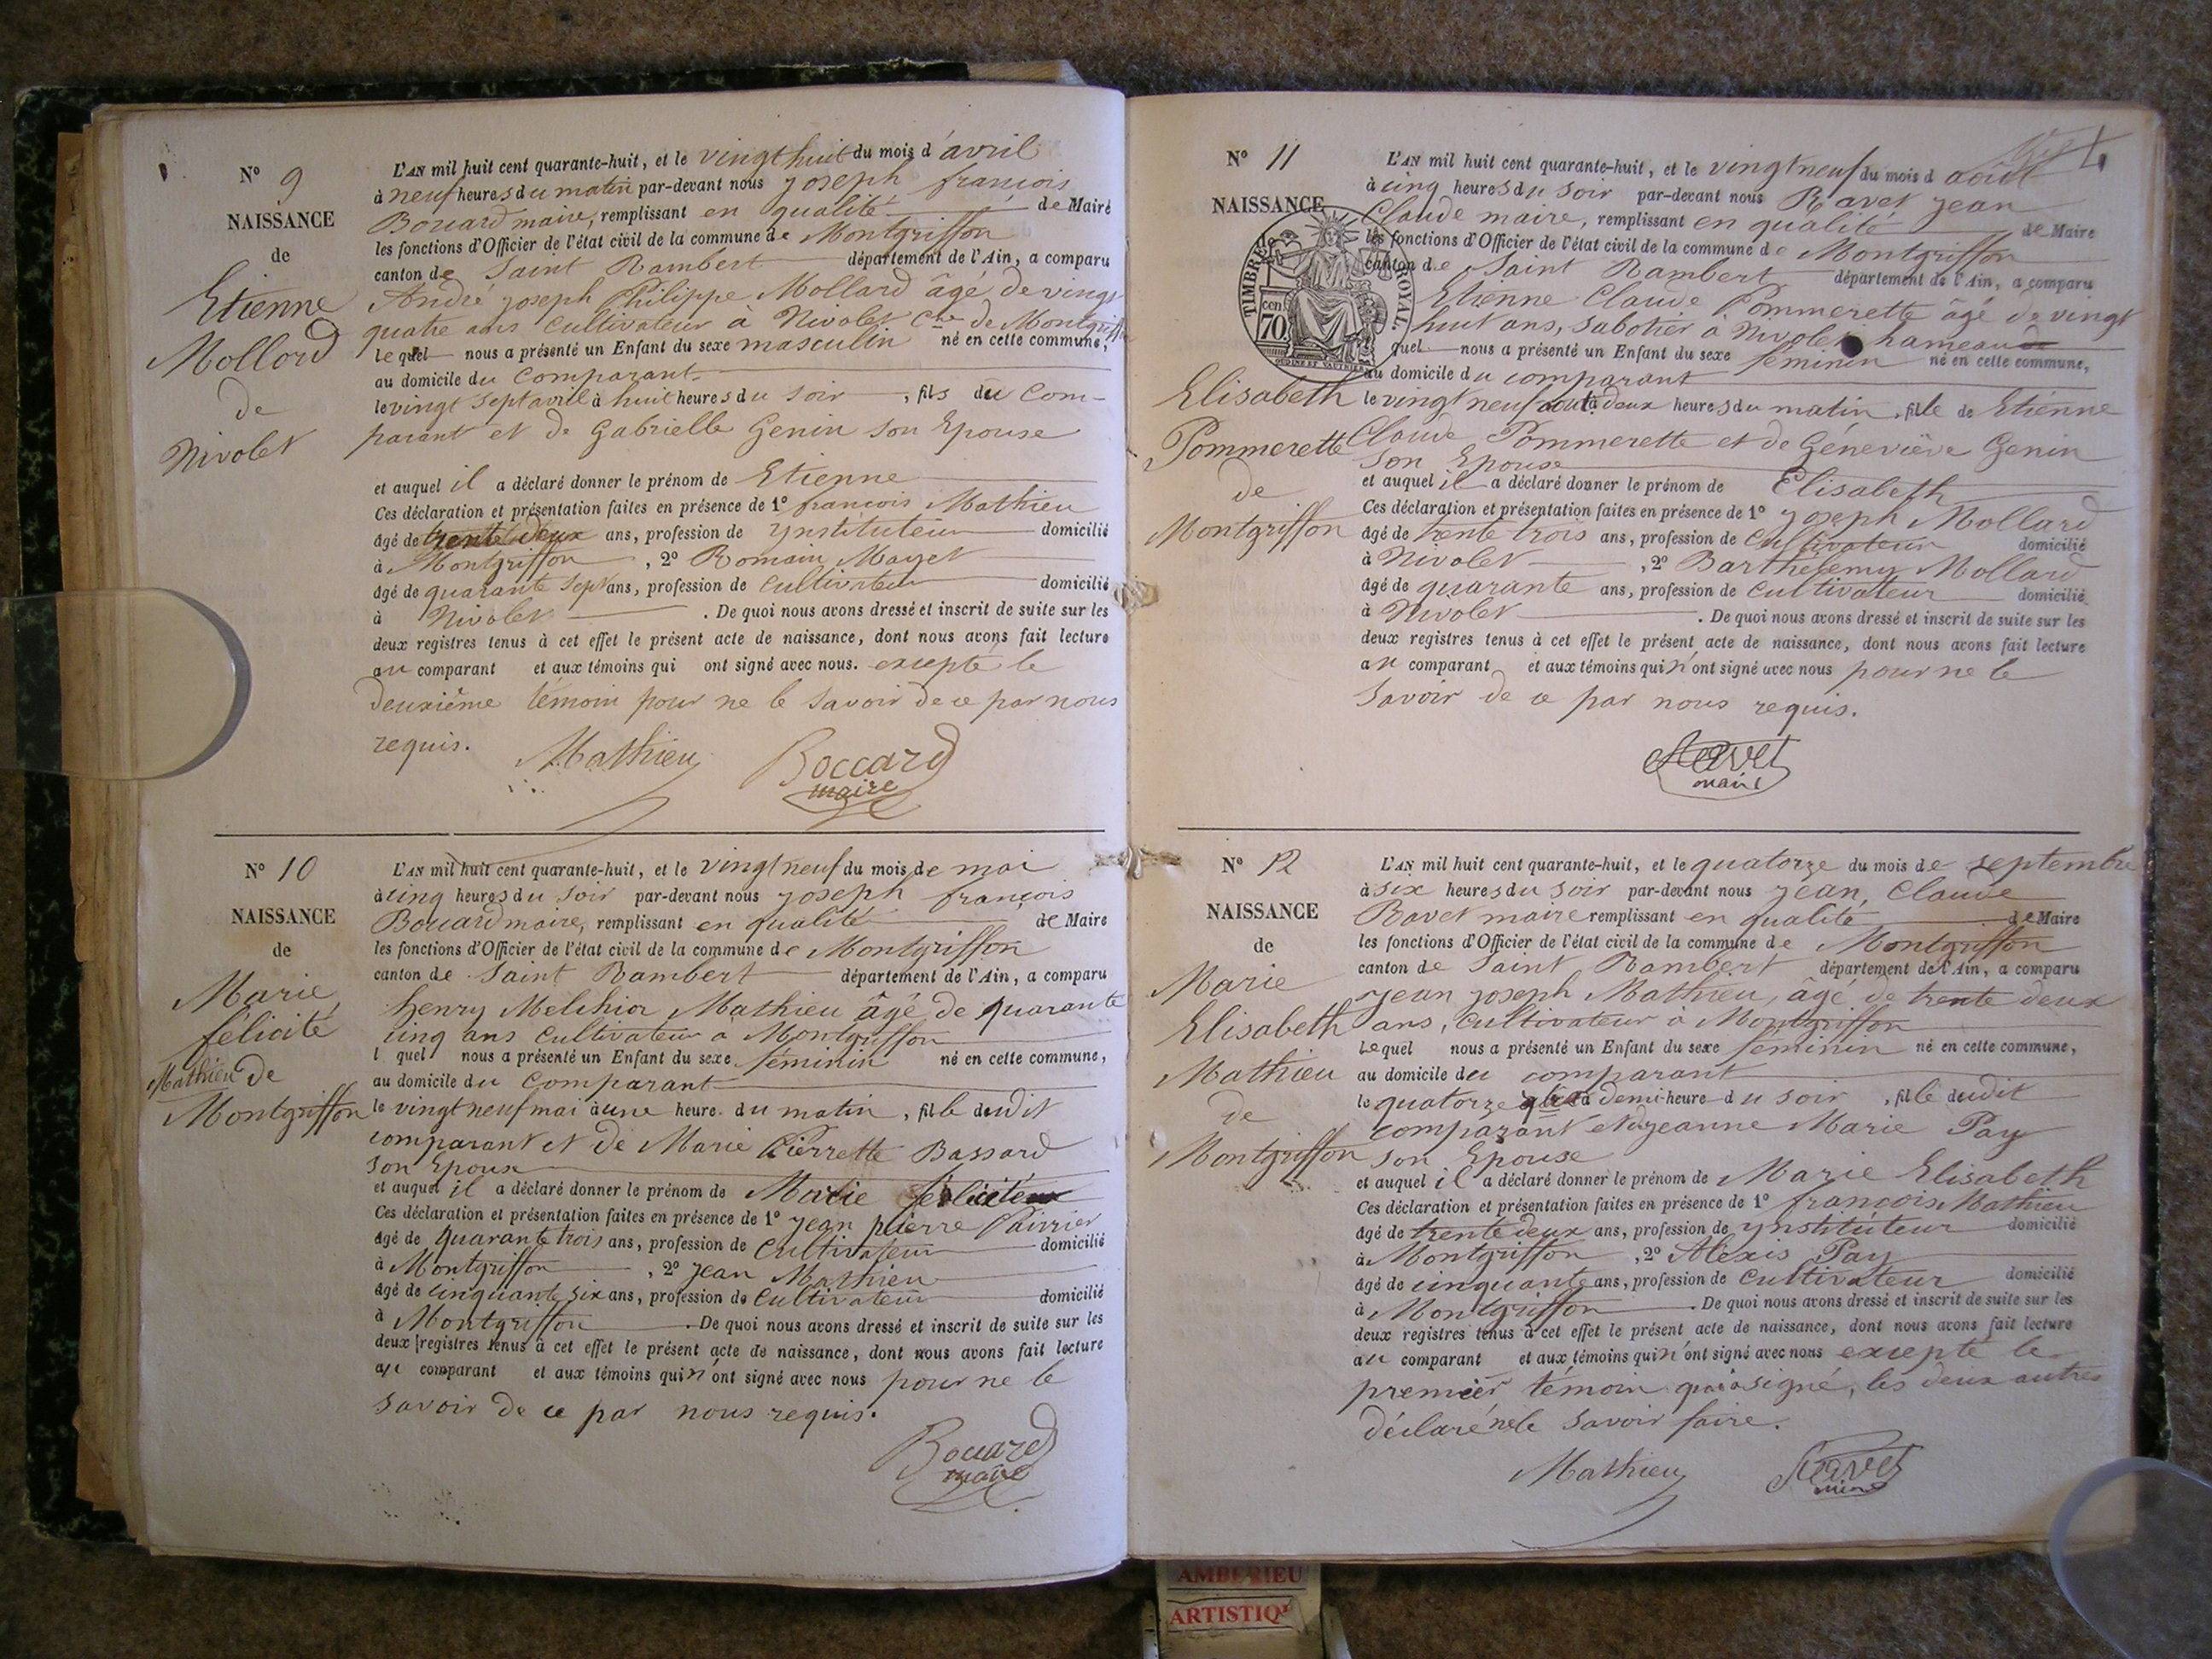 N° 9
NAISSANCE
de
Etienne
Mollard
de
Nivolet
L'AN mil huit cent quarante-huit, et le vingt huit du mois d'avril
à neuf heures du matin par-devant nous joseph françois
Boccard maire, remplissant en qualité de Maire
les fonctions d'Officier de l'état civil de la commune de Montgriffon
canton de Saint Rambert département de l'Ain, a comparu
André joseph Philippe Mollard âgé de vingt
quatre ans cultivateur à Nivolet Cne de Montgriffon
lequel nous a présenté un Enfant du sexe masculin né en cette commune,
au domicile du comparant
le vingt sept avril à huit heures du soir, fils du com-
parant et de Gabrielle Genin son Epouse
et auquel il a déclaré donner le prénom de Etienne
Ces déclaration et présentation faites en présence de 1° françois Mathieu
âgé de trente deux ans, profession de ynstituteur domicilié
à Montgriffon, 2° Romain Mayet
âgé de quarante sept ans, profession de cultivateur domicilié
à Nivolet. De quoi nous avons dressé et inscrit de suite sur les
deux registres tenus à cet effet le présent acte de naissance, dont nous avons fait lecture
au comparant et aux témoins qui ont signé avec nous. excepté le
deuxième témoin pour ne le savoir de ce par nous
requis.
Mathieu Boccard
maire
N° 10
NAISSANCE
de
Marie
félicité
Mathieu de
Montgriffon
L'AN mil huit cent quarante-huit, et le vingt neuf du mois de mai
à cinq heures du soir par-devant nous joseph françois
Boccard maire, remplissant en qualité de Maire
les fonctions d'Officier de l'état civil de la commune de Montgriffon
canton de Saint Rambert département de l'Ain, a comparu
henry Melchior Mathieu âgé de quarante
cinq ans cultivateur à Montgriffon
l quel nous a présenté un Enfant du sexe féminin né en cette commune,
au domicile du comparant
le vingt neuf mai à une heure du matin, fille dudit
comparant et de Marie Pierrette Bassard
son Epouse
et auquel il a déclaré donner le prénom de Marie félicité
Ces déclaration et présentation faites en présence de 1° jean pierre
âgé de quarante trois ans, profession de cultivateur domicilié
à Montgriffon, 2° jean Mathieu
âgé de cinquante six ans, profession de cultivateur domicilié
à Montgriffon. De quoi nous avons dressé et inscrit de suite sur les
deux registres tenus à cet effet le présent acte de naissance, dont nous avons fait lecture
au comparant et aux témoins qui n'ont signé avec nous pour ne le
savoir de ce par nous requis.
Boccard
maire
N° 11
NAISSANCE
de
TIMBRE ROYAL
70 cen
Elisabeth
Pommerette
de
Montgriffon
L'AN mil huit cent quarante-huit, et le vingt neuf du mois d août
à cinq heures du soir par-devant nous Ravet jean
Claude maire, remplissant en qualité de Maire
les fonctions d'Officier de l'état civil de la commune de Montgriffon
canton de Saint Rambert département de l'Ain, a comparu
Etienne Claude Pommerette âgé de vingt
huit ans, sabotier à Nivolet hameau
quel nous a présenté un Enfant du sexe féminin né en cette commune,
au domicile du comparant
le vingt neuf août à deux heures du matin, fille de Etienne
Claude Pommerette et de Géneviève Genin
son Epouse
et auquel il a déclaré donner le prénom de Elisabeth
Ces déclaration et présentation faites en présence de 1° joseph Mollard
âgé de trente trois ans, profession de cultivateur domicilié
à Nivolet, 2° Barthelemy Mollard
âgé de quarante ans, profession de cultivateur domicilié
à Nivolet. De quoi nous avons dressé et inscrit de suite sur les
deux registres tenus à cet effet le présent acte de naissance, dont nous avons fait lecture
au comparant et aux témoins qui n'ont signé avec nous pour ne le
savoir de ce par nous requis.
Ravet
maire
N° 12
NAISSANCE
de
Marie
Elisabeth
Mathieu
de
Montgriffon
L'AN mil huit cent quarante-huit, et le quatorze du mois de septembre
à six heures du soir par-devant nous jean, Claude
Ravet maire remplissant en qualité de Maire
les fonctions d'Officier de l'état civil de la commune de Montgriffon
canton de Saint Rambert département de l'Ain, a comparu
jean joseph Mathieu, âgé de trente deux
ans, cultivateur à Montgriffon
Lequel nous a présenté un Enfant du sexe féminin né en cette commune,
au domicile du comparant
le quatorze à demi-heure du soir, fille dudit
comparant et de jeanne Marie Pay
son Epouse
et auquel il a déclaré donner le prénom de Marie Elisabeth
Ces déclaration et présentation faites en présence de 1° françois Mathieu
âgé de trente deux ans, profession de ynstituteur domicilié
à Montgriffon, 2° Alexis Pay
âgé de cinquante ans, profession de cultivateur domicilié
à Montgriffon. De quoi nous avons dressé et inscrit de suite sur les
deux registres tenus à cet effet le présent acte de naissance, dont nous avons fait lecture
au comparant et aux témoins qui n'ont signé avec nous excepté le
premier témoin qui a signé, les deux autres
déclaré ne le savoir faire.
Mathieu Ravet
maire
AMBERIEU
ARTISTIQ